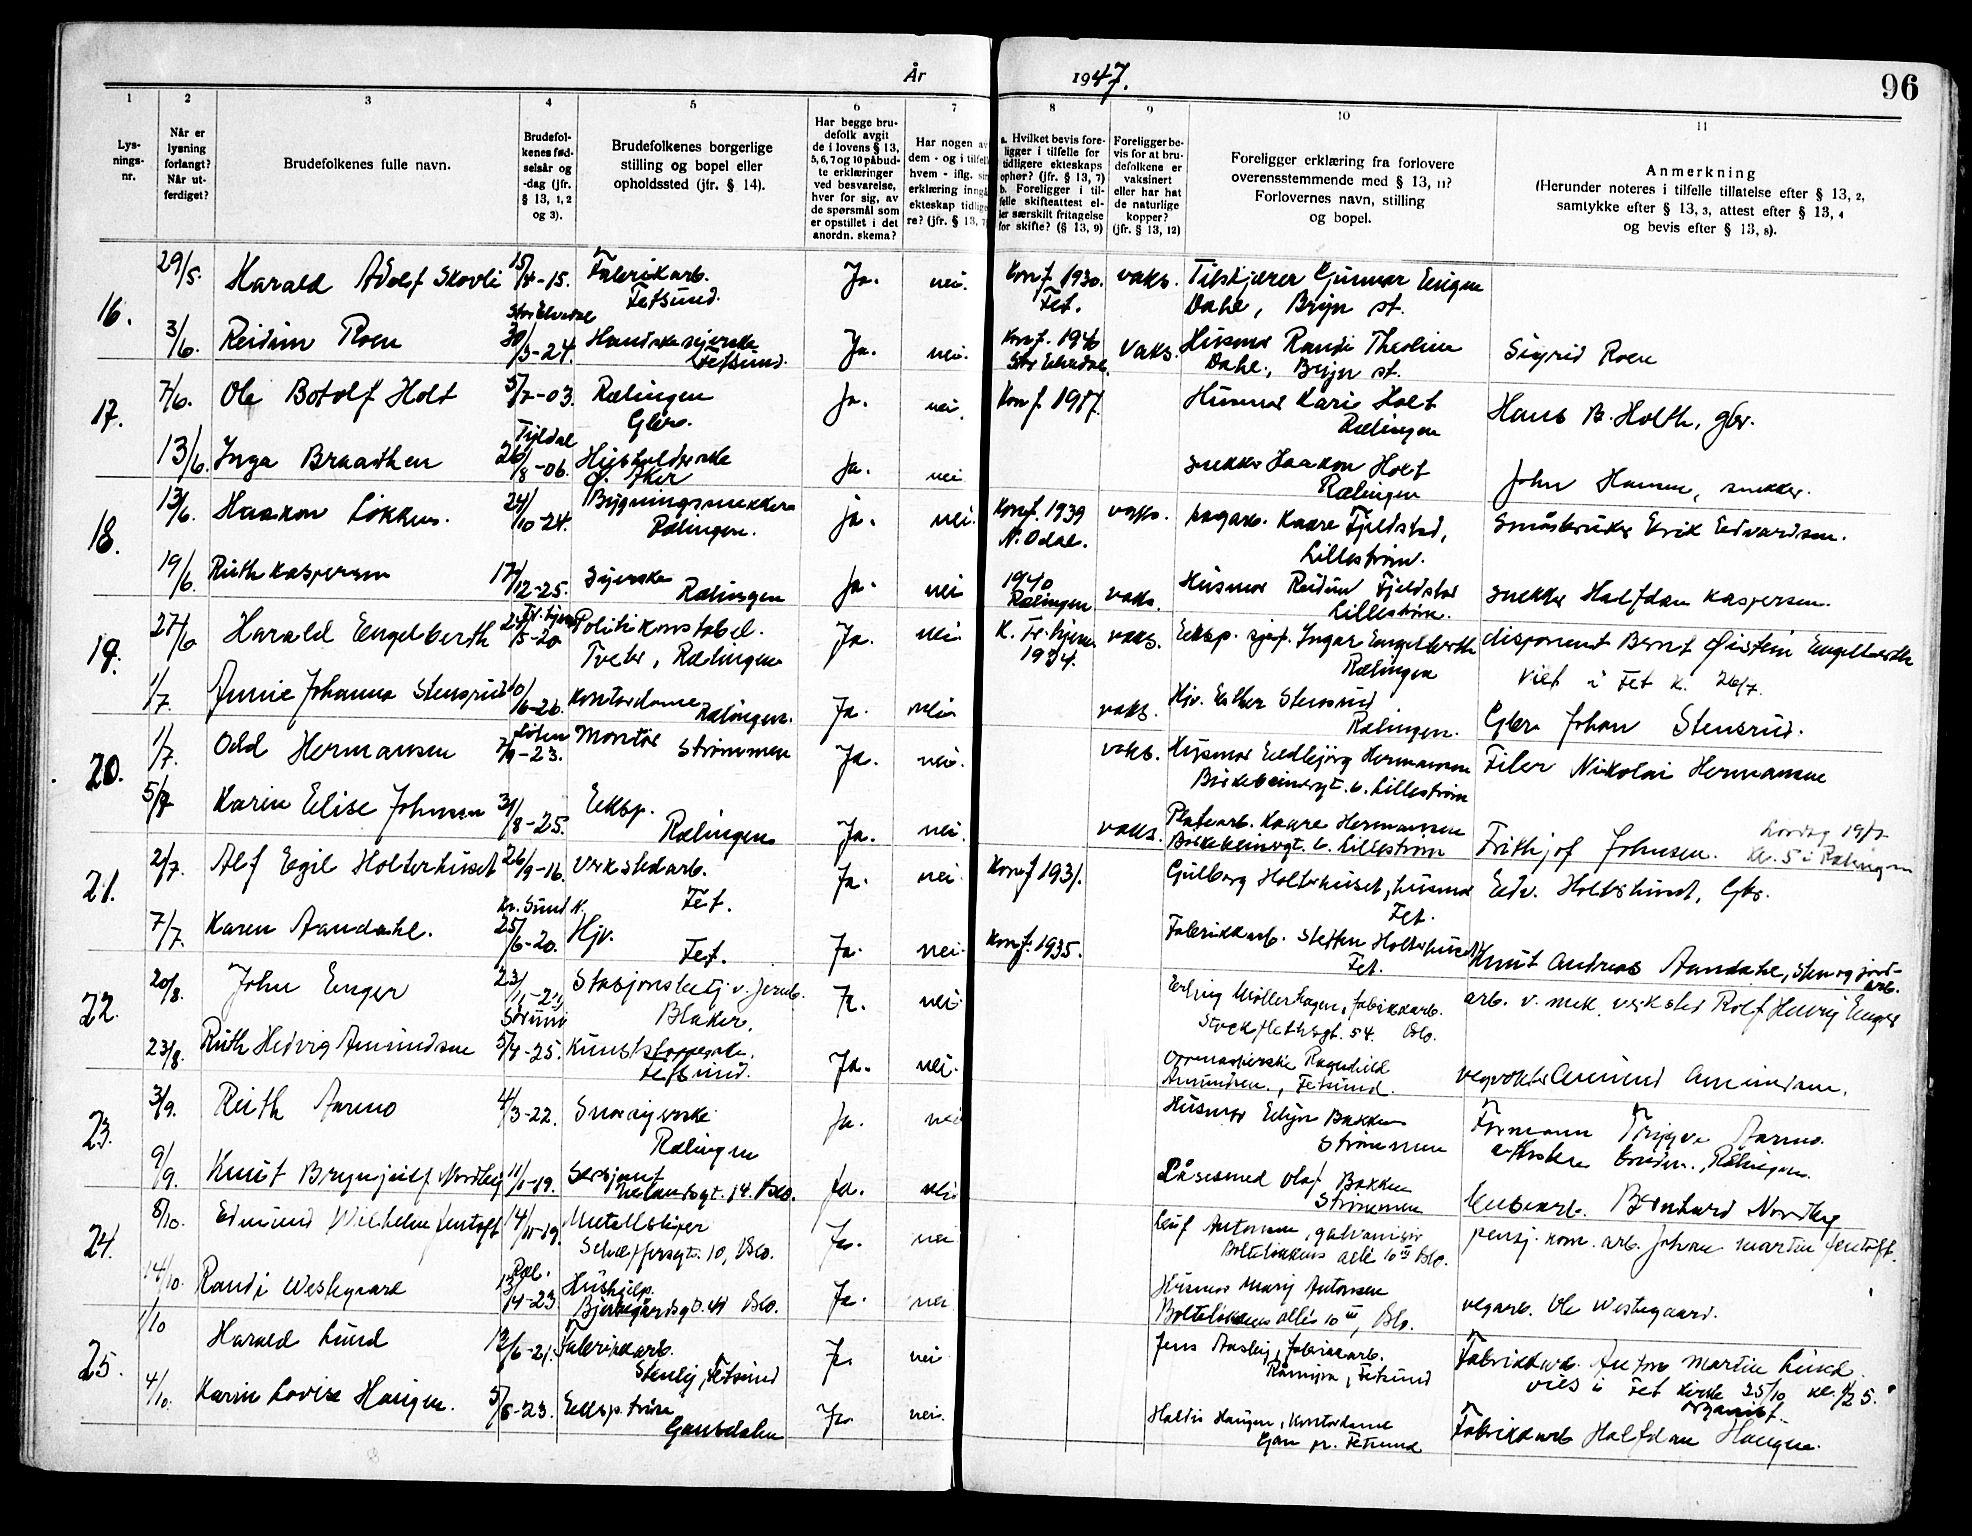 År 1947.
96
1 2 3 4 5 6 7 8 9 10 11
Lys-
nings-
nr.
Når er
lysning
forlangt?
Når ut-
ferdiget?
Brudefolkenes fulle navn.
Brudefol-
kenes fød-
selsår og
-dag (jfr.
§ 13, 1, 2
og 3).
Brudefolkenes borgerlige
stilling og bopel eller
opholdssted (jfr. § 14).
Har begge bru-
defolk avgit
de i lovens § 13,
5, 6, 7 og 10 påbud-
te erklæringer
ved besvarelse,
hver for sig, av
de spørsmål som
er opstillet i det
anordn. skema?
Har nogen av
dem - og i tilfelle
hvem - iflg. sin
erklæring inngå
ekteskap tidlige
re? (jfr. § 13, 7
a. Hvilket bevis fore-
ligger i tilfelle for
tidligere ekteskaps
ophør? (jfr. § 13, 7)
b. Foreligger i til-
felle skifteattest el-
ler særskilt fritagelse
for skifte? (§ 13, 9)
Foreligger be-
vis for at bru-
defolkene er
vaksinert
eller har hat
de naturlige
kopper?
(jfr. § 13, 12)
Foreligger erklæring fra forlovere
overensstemmende med § 13, 11?
Forlovernes navn, stilling
og bopel.
Anmerkning
(Herunder noteres i tilfelle tillatelse efter § 13, 2,
samtykke efter § 13, 3, attest efter § 13, 4
og bevis efter § 13, 8).
16.
29/5. Harald Adolf Skovli 15/4-15. Fabrikarb. Ja. nei. Konf. 1930. vaks. Tilskjærer Gunnar Engen
Fetsund. Fet. Dahl, Bryn st.
Stor Elvedal
3/6. Reidun Roen 30/3-24. Handskesyerske Ja. nei. Konf. 1940 Vaks. Husmor Randi Theoline Sigrid Roen
Fetsund. Str Elvedal. Dahl, Bryn st.
17.
7/6. Ole Botolf Holt 5/2-03. Rælingen Ja. nei. Konf. 1917. Husmor Kari Holt Hans B. Holth, gbr.
Gbr. Rælingen
Tyldal
13/6. Inga Braathen 26/8-06. Husholderske Ja. nei snekker Haakon Holt John Hansen, snekker.
Ø. Aker Rælingen
18.
13/6. Haakon Løkken. 24/10-24. Bygningssnekker ja. nei. Konf. 1939 vaks. Kaare Fjeldstad, Småbruker Erik Edvardsen.
Rælingen. N. Odal. Lillestrøm.
19/6 Ruth Kaspersen 17/12-25. syerske Ja. nei 1940 vaks. Husmor Reidun Fjeldstad snekker Halfdan Kaspersen.
Rælingen Rælingen Lillestrøm.
19.
27/6 Harald Engelberth 5-20 Politikonstabel. Ja. nei K. Tr.hjem vaks. Eksp. sjef. Yngar Engelberth disponent Bernt Øistein Engelberth
Tveter, Rælingen 1934. Rælingen viet i Fet K. 26/7.
1/7. Annie Johanna Stensrud 10/6-26. Kontordame Ja. nei vaks. Hjv. Esther Stensrud Gbr. Johan Stensrud.
Rælingen. Rælingen.
20.
Løten
1/7. Odd Hermansen 9-23. Montør Strømmen Ja. nei. vaks. Husmor Edbjørg Hermansen Filer Nikolai Hermansen
Birkebeinergt. 6. Lillestrøm
5/7 Karin Elise Johnsen 31/8-25. Eksp. Ja. nei. vaks. Platearb. Kaare Hermansen Frithjof Johnsen. Lørdag 19/7
Rælingen Birkebeinergt. 6. Lillestrøm kl. 5 i Rælingen
21.
2/7. Alf Egil Holterhuset 26/9-16. Verkstedarb. Ja. nei. Konf 1931. Gulborg Holterhuset, husmor Edv. Holterhuset, Gbr.
Fet. Fet.
Kr. Sund N.
7/7. Karen Aandahl. 25/6-20. Hjv. Ja. nei. Konf. 1935. Fabrikkarb. Steffen Holterhuset Knut Andreas Aandahl, sten og jord-
Fet. Fet. arb.
22.
20/8. John Enger 23/11-21 Stasjonsbetj. v. jernb. Ja. nei Erling Møllerhagen, fabrikkarb. arb. v. mek. verksted Rolf Henry Enger
Sørum Blaker. Stockflethsgt. 54. Oslo.
23/8. Ruth Hedvig Amundsen 5/4-25. Kunststopperske. Ja. nei. Ragnhild vegvokter Amund Amundsen.
Fetsund. Amundsen, Fetsund.
23.
3/9. Ruth Aarmo 4/3-22. Snorsyerske Ja. nei Husmor Edyn Bakken Formann Trygve Aarmo.
Rælingen Strømmen Rælingen.
9/9. Knut Brynjulf Nordby 11/1-19. Sersjant Ja. nei Låsesmed Olaf Bakken Bernhard Nordby
14. Oslo. Strømmen
24.
8/10. Edmund Wilhelm Jentoft 14/11-19. Metallsliper Ja. nei Leif Antonsen, galvanisør pensj. kom. arb. Johan Martin Jentoft.
Schæffersgt. 10, Oslo. Bolteløkkens alle 10 III Oslo.
Ræl.
14/10. Randi Westgaard 13/4-23 Hushjelp. Ja. nei Husmor Mary Antonsen vegarb. Ole Westgaard.
Bjerregårdsgt. 41 Oslo. Bolteløkkens allé 10 III, Oslo.
25.
1/10 Harald Lund 12/6-21. Fabrikkarb. Ja. nei Jens Aasby, fabrikkarb. Fabrikkarb. Anton Martin Lund
Stenby, Fetsund Fetsund vies i Fet kirke 25/10 kl. 1/2 5.
4/10. Karin Lovise Haugen. 5/6-23. Eksp.trise Ja. nei. Haldis Haugen, kontordame Fabrikkarb Halfdan Haugen.
Gansdalen Gan pr. Fetsund